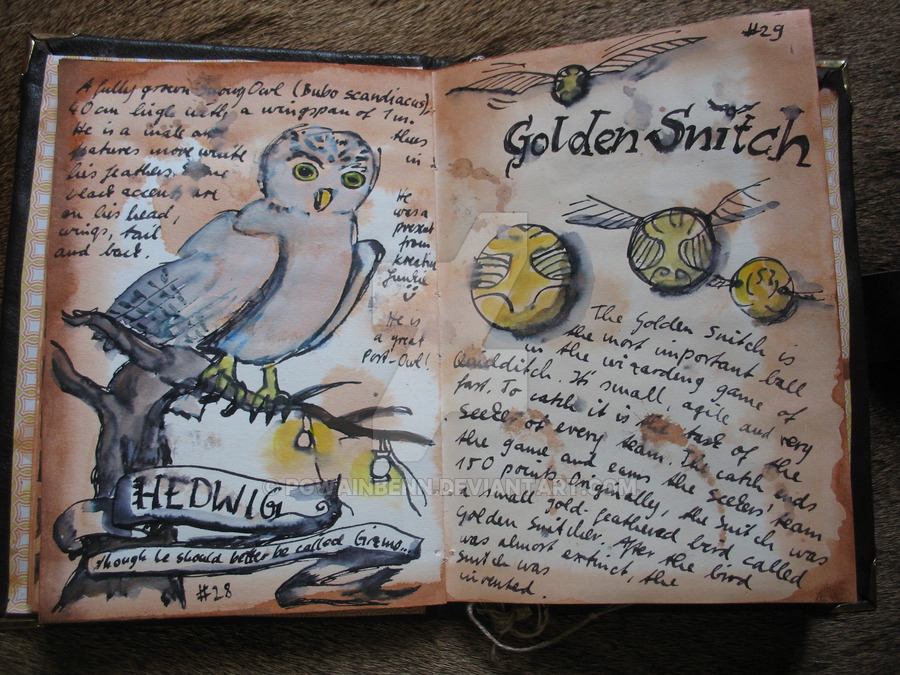 A fully grown Snowy Owl (Bubo scandiacus)
40 cm high with a wingspan of 1 m.
He is a male and thus
features more white in
his feathers. Some
black accents are
on his head,
wings, tail
and back.
He
was a
present
from
Kreativ
Junkie
He is
a great
Post-Owl!
HEDWIG
though he should better be called Gizmo...
#28
#29
Golden Snitch
The Golden Snitch is
the most important ball
in the wizarding game of
Quidditch. It's small, agile and very
fast. To catch it is the task of the
seeker of every team. The catch ends
the game and earns the seekers' team
150 points. Originally, the Snitch was
a small gold-feathered bird called
Golden Snitcher. After the bird
was almost extinct, the
Snitch was
invented.
©POWAINBENN.DEVIANTART.COM